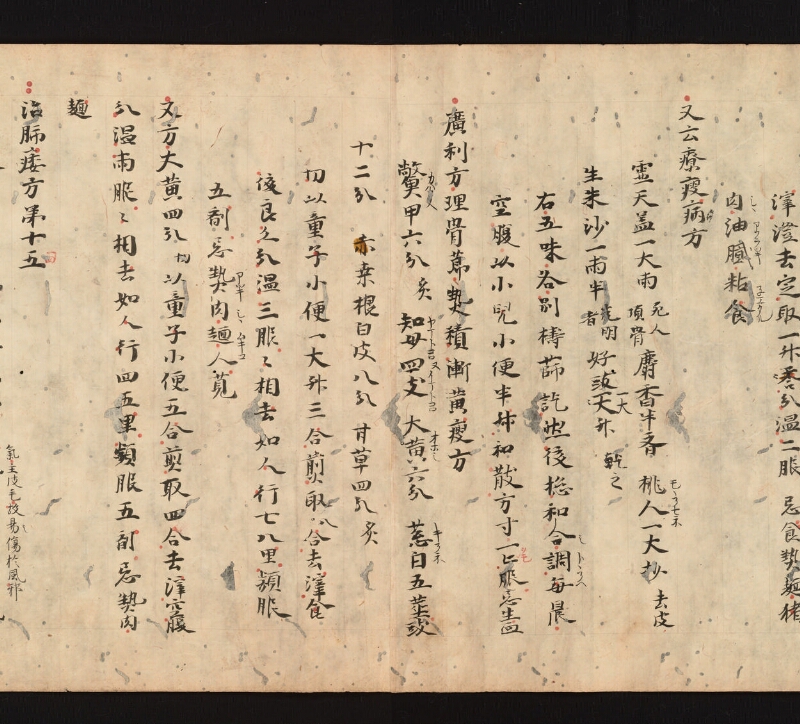 滓澄去定取一升香分温二服忌食熱麺猪
肉油膩粘食
又云療瘦病方
霊天盖一大兩 死人頂骨 麝香半斉 桃人一大抄 去皮
生朱沙一兩半 光明者 好豉一大升 乾之
右五味各別擣篩訖然後揔和合調每晨
空腹以小児小便半升和散方寸一匕服忌生血
廣利方理骨蒸熱積漸黄瘦方
鱉甲六分 炙 知母四支 大黄六分 葱白五茎 豉
十二分 赤桒根白皮八分 甘草四分 炙
切以童子小便一大升三合煎取八合去滓食
後良久分温三服〻相去如人行七八里頻服
五剤忌熱肉麺人莧
又方大黄四分 切 以童子小便五合煎取四合去滓空腹
分温兩服〻相去如人行四五里頻服五剤忌熱肉
麺
治肺痿方第十五
氣主皮毛故易傷於風邪